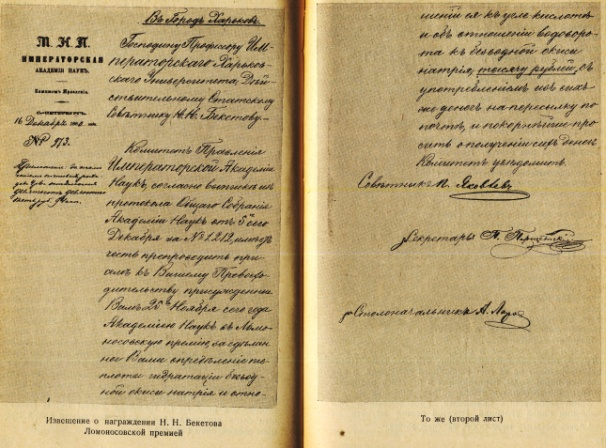 Въ Городъ Харьковъ
М. Н. П.
ИМПЕРАТОРСКАЯ
АКАДЕМІЯ НАУКЪ.
Комитетъ Правленія.
С.-ПЕТЕРБУРГЪ.
16 Декабря
№ 273.
Господину Профессору Им-
ператорскаго Харьков-
скаго Университета, Дѣй-
ствительному Статскому
Совѣтнику Н. Н. Бекетову.
Комитетъ Правленія
Императорской Академіи
Наукъ, согласно выписки изъ
протокола Общаго Собранія
Академіи Наукъ отъ 5го сего
Декабря за № 1212, имѣетъ
честь препроводить при
семъ къ Вашему Превосхо-
дительству присужденную
Вамъ 25го Ноября сего года
Академіею Наукъ Ломо-
носовскую премію, за сдѣлан-
ное Вами опредѣленіе те-
плоты гидратаціи безвод-
ной окиси натрія и отно-
Извещение о награждении Н. Н. Бекетова
Ломоносовской премией
шенія ея къ углекислотѣ
и объ отношеніи водорода
къ безводной окиси
натрія, тысячу рублей, съ
употребленіемъ изъ сихъ
же денегъ на пересылку по
почтѣ, и покорнѣйше про-
ситъ о полученіи сихъ денегъ
Комитетъ увѣдомить.
Совѣтникъ П. Яковлевъ
Секретарь П.
Столоначальникъ А.
То же (второй лист)